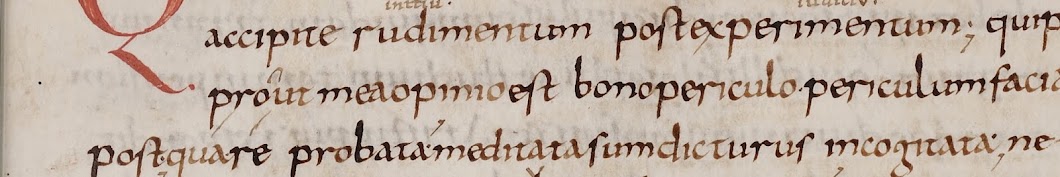 Q accipite rudimentum post experimentum; quip
prout mea opinio est bono periculo. periculum facia
postquare probata meditata sum dicturus incogitata, ne